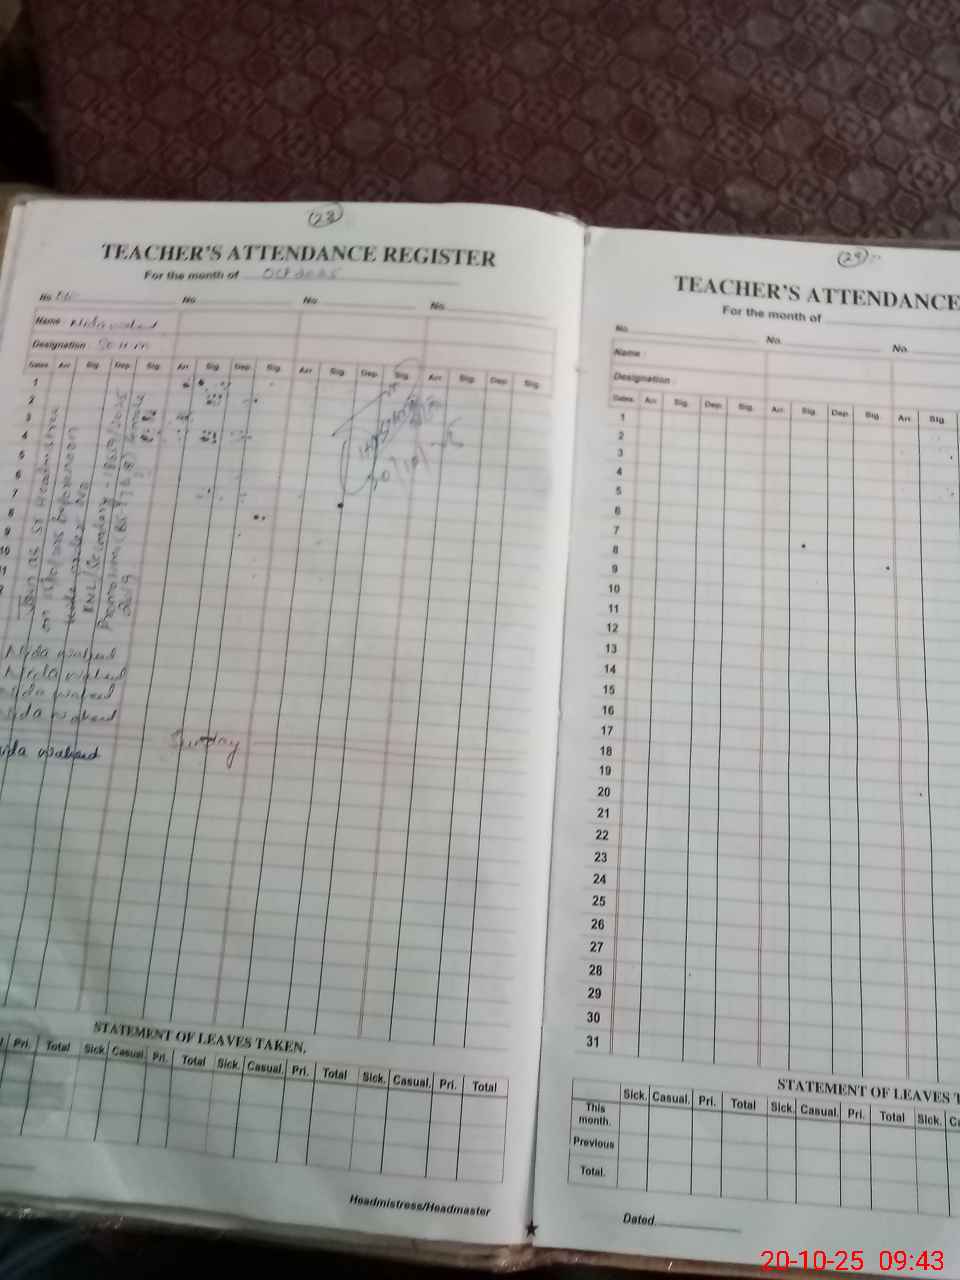 23
TEACHER'S ATTENDANCE REGISTER
For the month of Oct 2025
No No No No.
Name Nida waheed
Designation
Dates Arr Sig. Dep. Sig. Arr. Sig. Dep. Sig. Arr. Sig. Dep. Sig. Arr. Sig. Dep. Sig.
1
2
3
4
5
6
7
8
9
10
11
on as Headmistress
on
Nida waheed
Nida waheed
Nida waheed
Nida waheed
Sunday
Nida waheed
STATEMENT OF LEAVES TAKEN.
Pri. Total Sick. Casual. Pri. Total Sick. Casual. Pri. Total Sick. Casual. Pri. Total
Headmistress/Headmaster
TEACHER'S ATTENDANCE
For the month of
No. No. No.
Name :
Designation :
Dates Arr. Sig. Dep. Sig. Arr. Sig. Dep. Sig. Arr. Sig.
1
2
3
4
5
6
7
8
9
10
11
12
13
14
15
16
17
18
19
20
21
22
23
24
25
26
27
28
29
30
31
STATEMENT OF LEAVES T
Sick. Casual. Pri. Total Sick. Casual. Pri. Total Sick.
This month.
Previous
Total.
Dated.
20-10-25 09:43